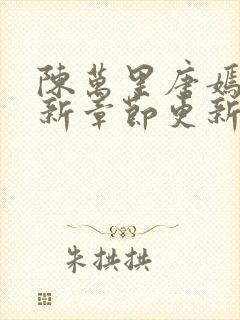 陳萬里唐嫣
新章節更新
朱拱拱